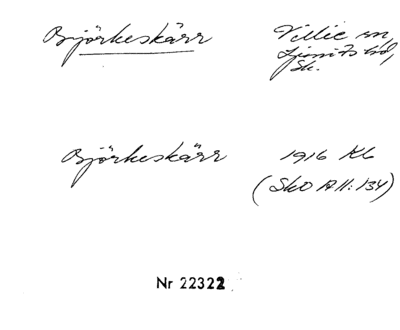 Björkeskärr Villie sn,
Ljunits hd,
Sk.
Björkeskärr 1916 Kb
(SkO A II: 134)
Nr 22322